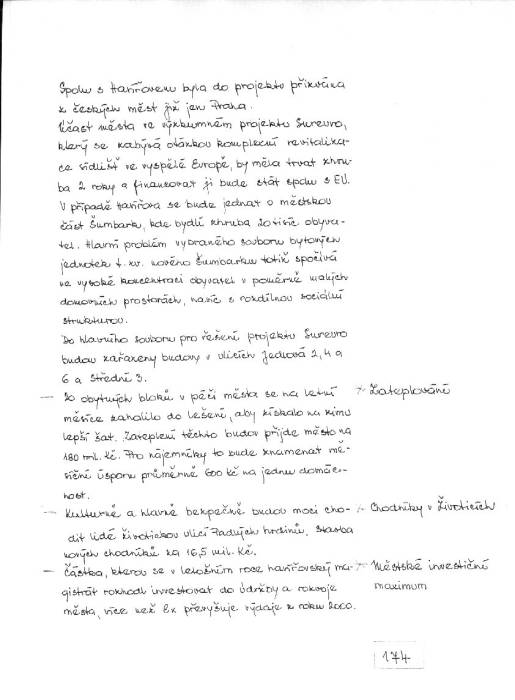 Spolu s Havířovem byla do projektu přizvána
z českých měst již jen Praha.
Účast města ve výzkumném projektu Sureuro,
který se zabývá otázkou komplexní revitaliza-
ce sídlišť ve vyspělé Evropě, by měla trvat zhru-
ba 2 roky a financovat ji bude stát spolu s EU.
V případě Havířova se bude jednat o městskou
část Šumbark, kde bydlí zhruba 20 tisíc obyva-
tel. Hlavní problém vybraného souboru bytových
jednotek t. zv. nového Šumbarku totiž spočívá
ve vysoké koncentraci obyvatel v poměrně malých
domovních prostorách, navíc s rozdílnou sociální
strukturou.
Do hlavního souboru pro řešení projektu Sureuro
budou zařazeny budovy v ulicích Jedlová 2, 4 a
6 a Střední 3.
— 20 obytných bloků v péči města se na letní
měsíce zahalilo do lešení, aby získalo na zimu
lepší šat. Zateplení těchto budov přijde město na
180 mil. Kč. Pro nájemníky to bude znamenat mě-
síční úsporu průměrně 600 Kč na jednu domác-
nost.
Zateplování
— Kulturně a hlavně bezpečně budou moci cho-
dit lidé životickou ulicí Padlých hrdinů. Stavba
nových chodníků za 16,5 mil. Kč.
Chodníky v Životicích
— Částka, kterou se v letošním roce havířovský ma-
gistrát rozhodl investovat do údržby a rozvoje
města, více než 8x převyšuje výdaje z roku 2000.
Městské investiční
maximum
174